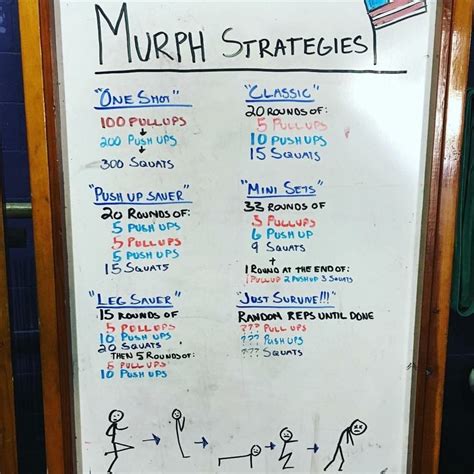 MURPH STRATEGIES
"ONE SHOT"
100 PULLUPS
200 PUSH UPS
300 SQUATS
"CLASSIC"
20 ROUNDS OF:
5 PULLUPS
10 PUSH UPS
15 SQUATS
"PUSH UP SAVER"
20 ROUNDS OF:
5 PUSH UPS
5 PULLUPS
5 PUSH UPS
15 SQUATS
"MINI SETS"
33 ROUNDS OF:
3 PULLUPS
6 PUSH UP
9 SQUATS
+
1 ROUND AT THE END OF:
1 PULLUP 2 PUSHUP 3 SQUATS
"LEG SAVER"
15 ROUNDS OF
5 PULL UPS
10 PUSH UPS
20 SQUATS
THEN 5 ROUNDS OF:
5 PULLUPS
10 PUSH UPS
"JUST SURVIVE!!!"
RANDOM REPS UNTIL DONE
??? PULL UPS
??? PUSH UPS
??? SQUATS